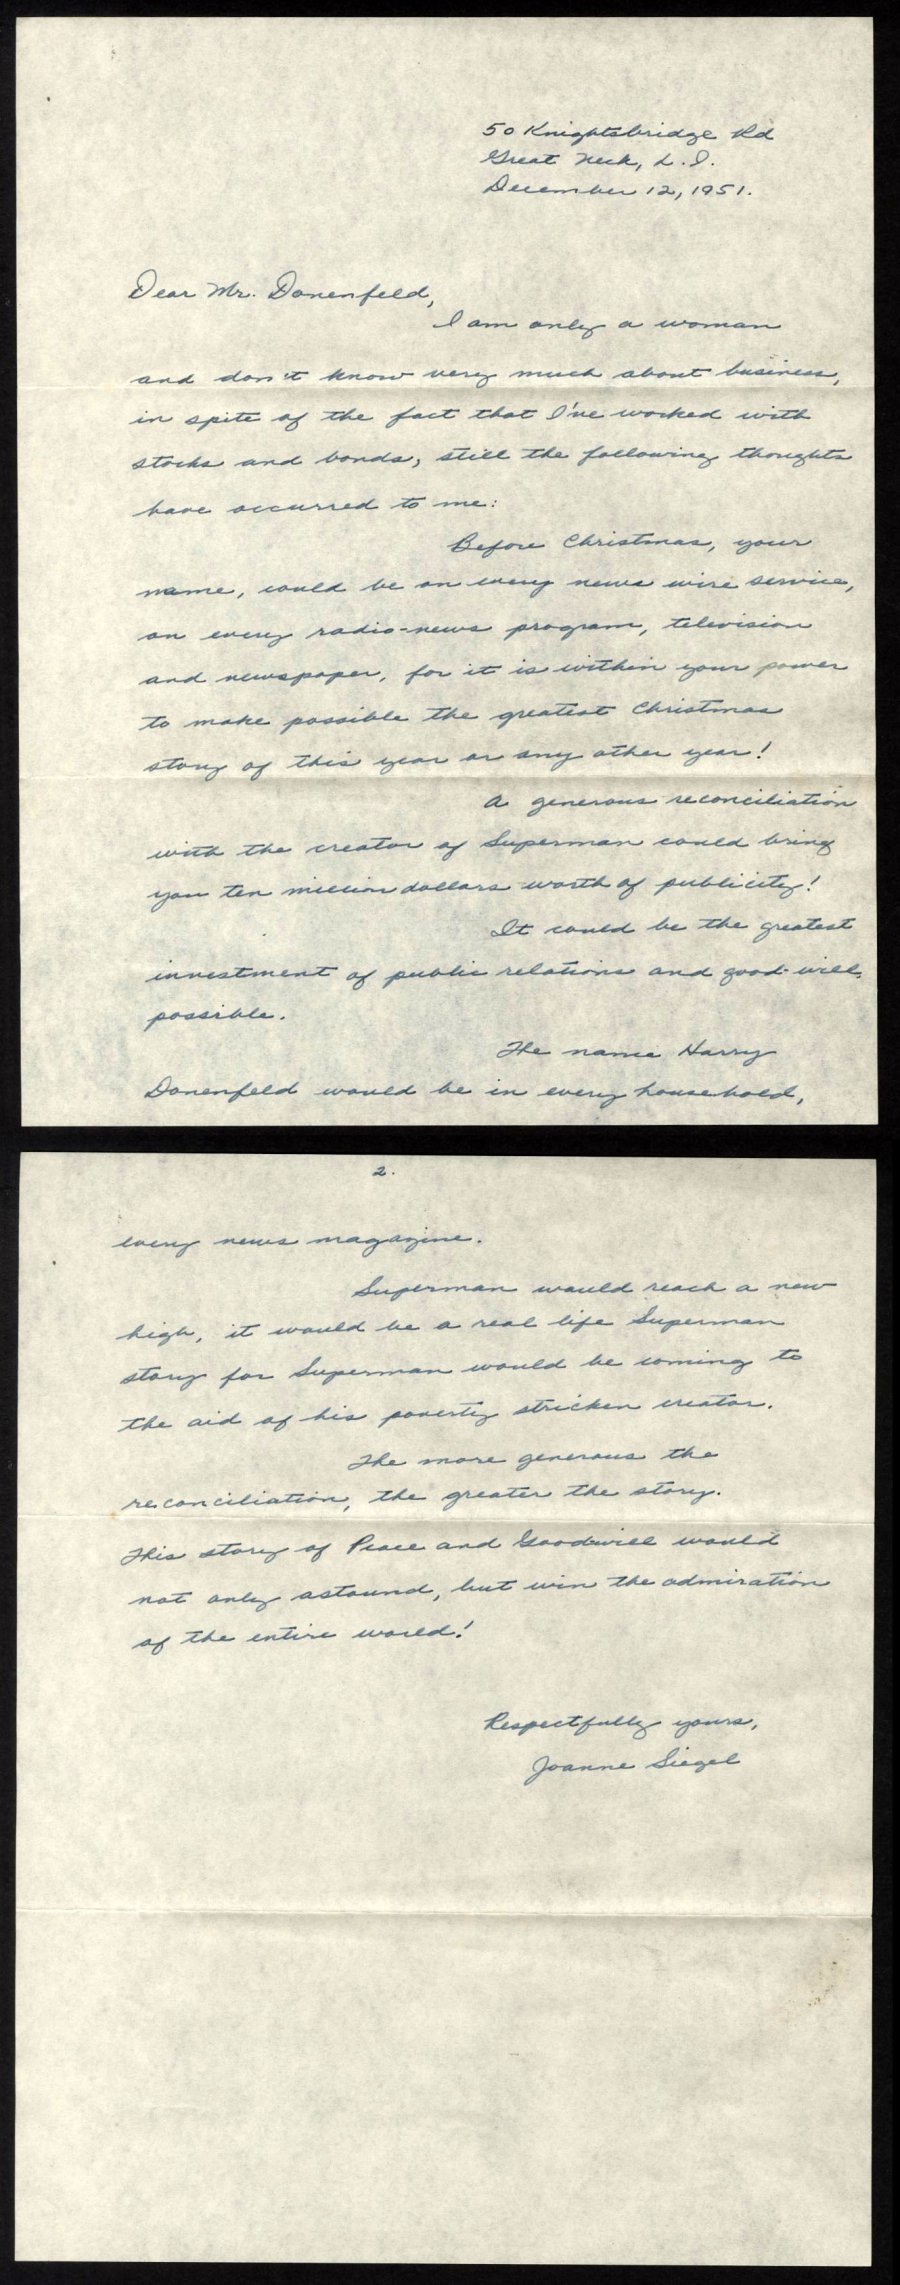 50 Knightsbridge Rd
Great Neck, L.I.
December 12, 1951.
Dear Mr. Donenfeld,
I am only a woman
and don't know very much about business,
in spite of the fact that I've worked with
stocks and bonds, still the following thoughts
have occurred to me:
Before Christmas, your
name, could be on every news wire service,
on every radio-news program, television
and newspaper, for it is within your power
to make possible the greatest Christmas
story of this year or any other year!
A generous reconciliation
with the creator of Superman could bring
you ten million dollars worth of publicity!
It could be the greatest
investment of public relations and good-will,
possible.
The name Harry
Donenfeld would be in every household,
2.
every news magazine.
Superman would reach a new
high, it would be a real life Superman
story for Superman would be coming to
the aid of his poverty stricken creator.
The more generous the
reconciliation, the greater the story.
This story of Peace and Goodwill would
not only astound, but win the admiration
of the entire world!
Respectfully yours,
Joanne Siegel